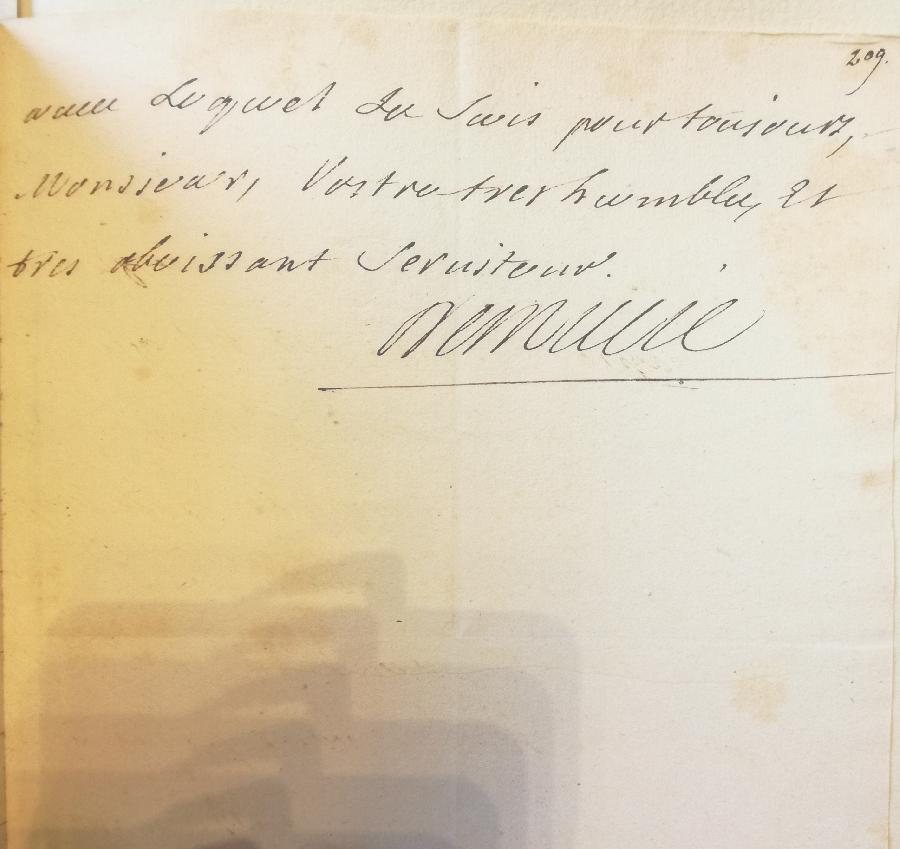 209.
avec Lequel Je Suis pour tousiours,
Monsieur, Vostre tres humble, Et
tres obeissant Seruiteur.